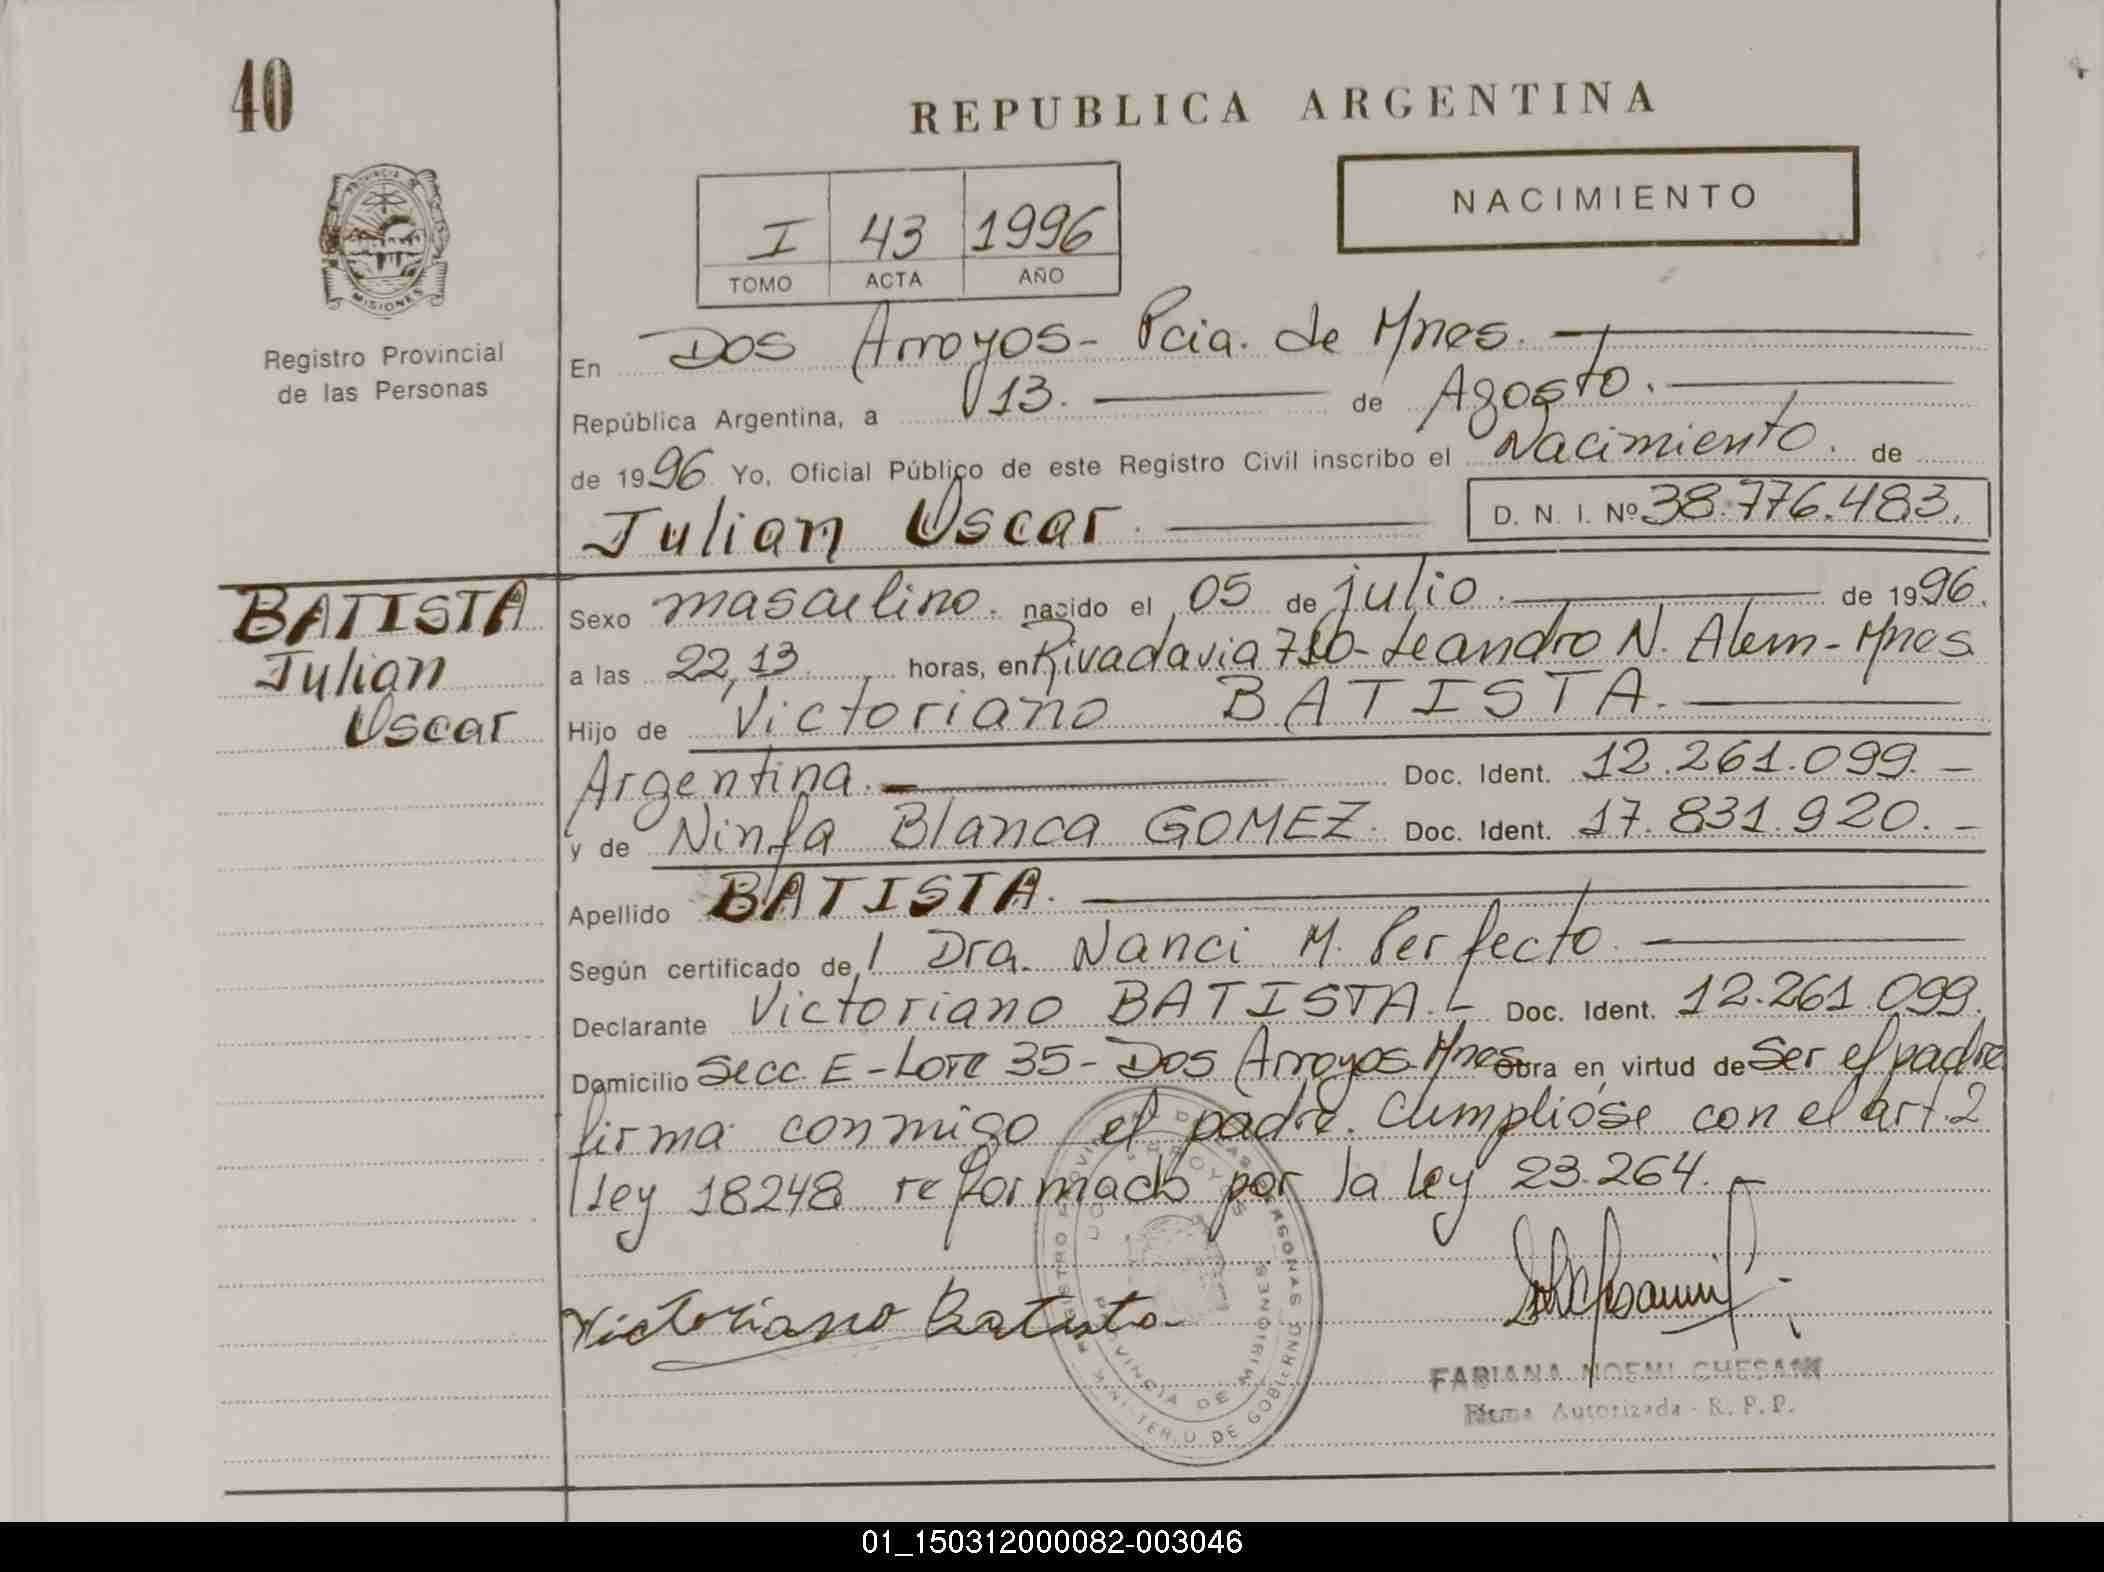 40
REPUBLICA ARGENTINA
NACIMIENTO
I 43 1996
TOMO ACTA AÑO
PROVINCIA DE
MISIONES
Registro Provincial
de las Personas
En Dos Arroyos - Pcia. de Mnes.
República Argentina, a 13. de Agosto.
de 1996. Yo, Oficial Público de este Registro Civil inscribo el Nacimiento. de
Julian Oscar. D. N. I. Nº 38.776.483.
BATISTA
Julian
Oscar
Sexo masculino. nacido el 05 de julio. de 1996.
a las 22,13 horas, en Rivadavia 710 - Leandro N. Alem - Mnes
Hijo de Victoriano BATISTA.
Argentina. Doc. Ident. 12.261.099. -
y de Ninfa Blanca GOMEZ. Doc. Ident. 17.831.920. -
Apellido BATISTA.
Según certificado de Dra. Nanci M. Perfecto.
Declarante Victoriano BATISTA. Doc. Ident. 12.261.099.
Domicilio Secc. E - Lote 35 - Dos Arroyos. Mnes Obra en virtud de Ser el padre
firma conmigo el padre. Cumplióse con el art. 2
Ley 18248 reformado por la ley 23.264. -
Victoriano Batista
FABIANA NOEMI CHESANI
Firma Autorizada - R. P. P.
PROVINCIA DE MISIONES
MINISTERIO DE GOBIERNO
01_150312000082-003046